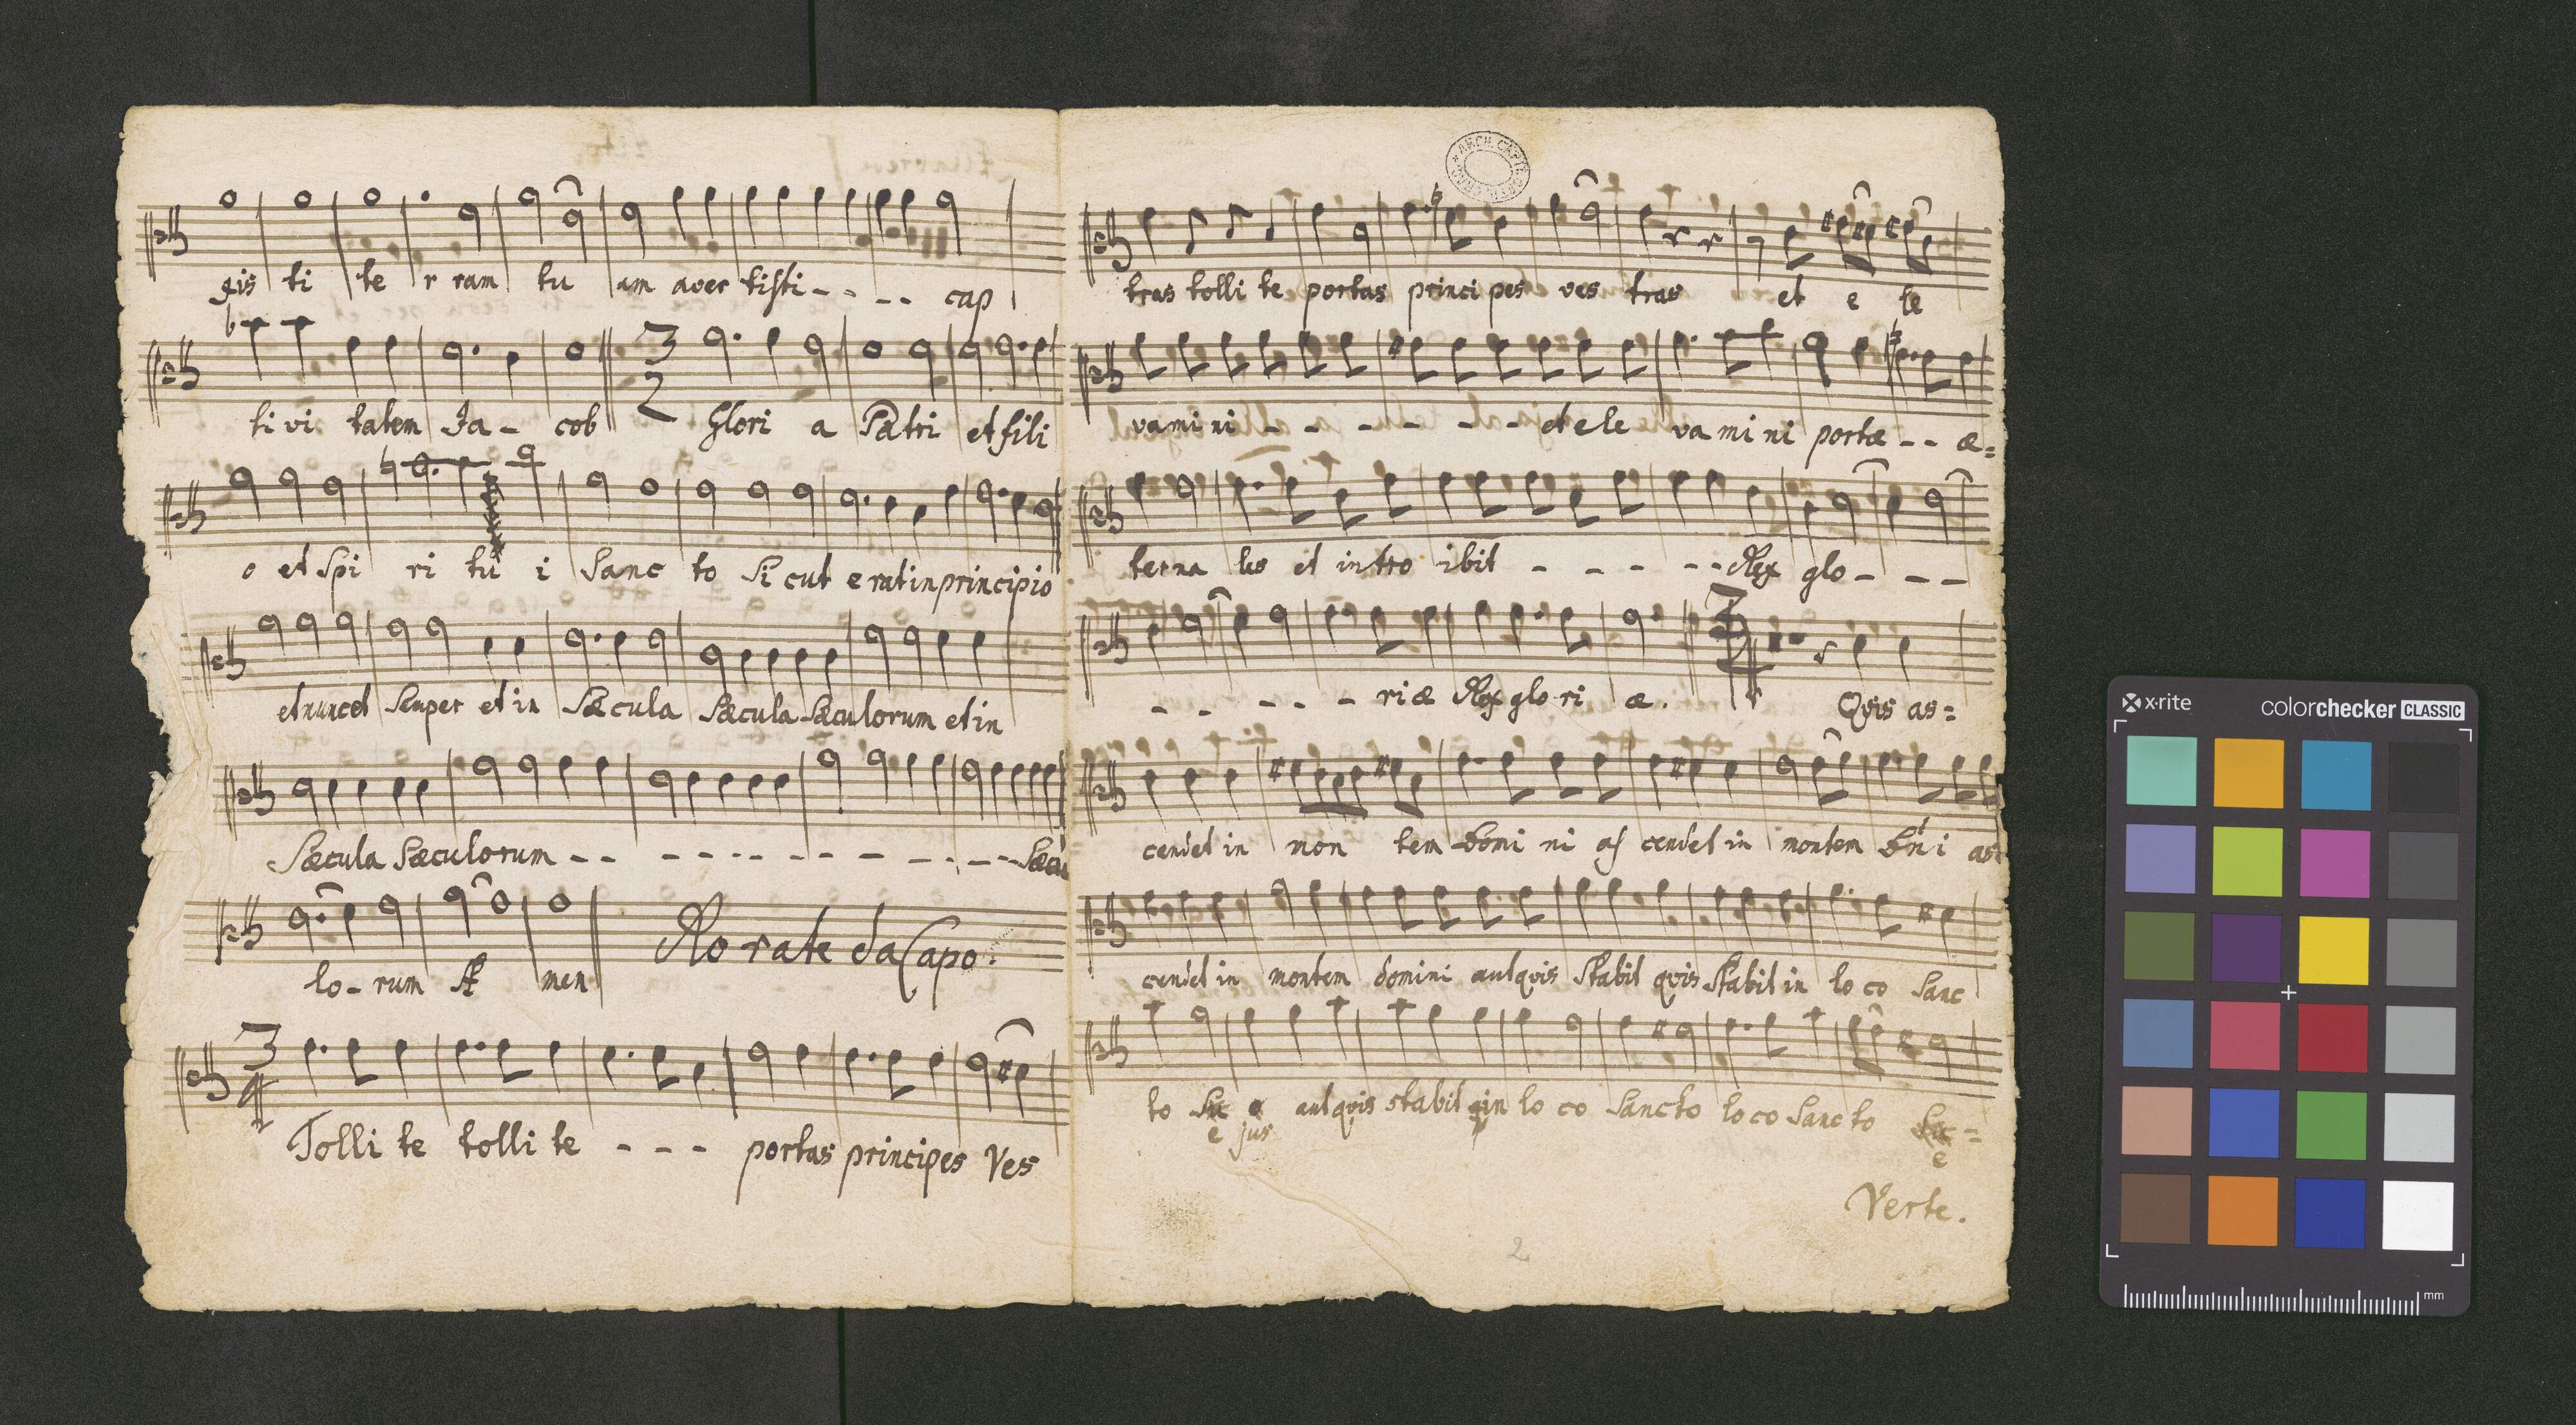 gis ti te r ram tu am aver tisti - - - - cap
ti vi tatem Ja - cob Glori a Patri et fili
o et Spi ri tu i Sanc to Si cut e rat in principio
et nunc et Semper et in Sæcula Sæcula Sæculorum et in
Sæcula Sæculorum - - - - - - - - - - - - Sæcu
lo - rum A men Rorate da Capo.
Tolli te tolli te - - - portas principes Ves
ARCH. CAPIT.
tras tolli te portas princi pes ves tras et e le
vamini ni - - - - - - - et ele va mi ni portæ - - æ=
terna les et intro ibit - - - - - Rex glo - - - -
- - - - - riæ Rex glo ri æ. Quis as=
cendet in mon tem Domi ni as cendet in montem Dni as=
cendet in montem domini aut quis Stabit quis Stabit in lo co Sanc
to e jus aut quis stabit in lo co Sancto lo co Sanc to e =
Verte.
2
x·rite colorchecker CLASSIC
mm